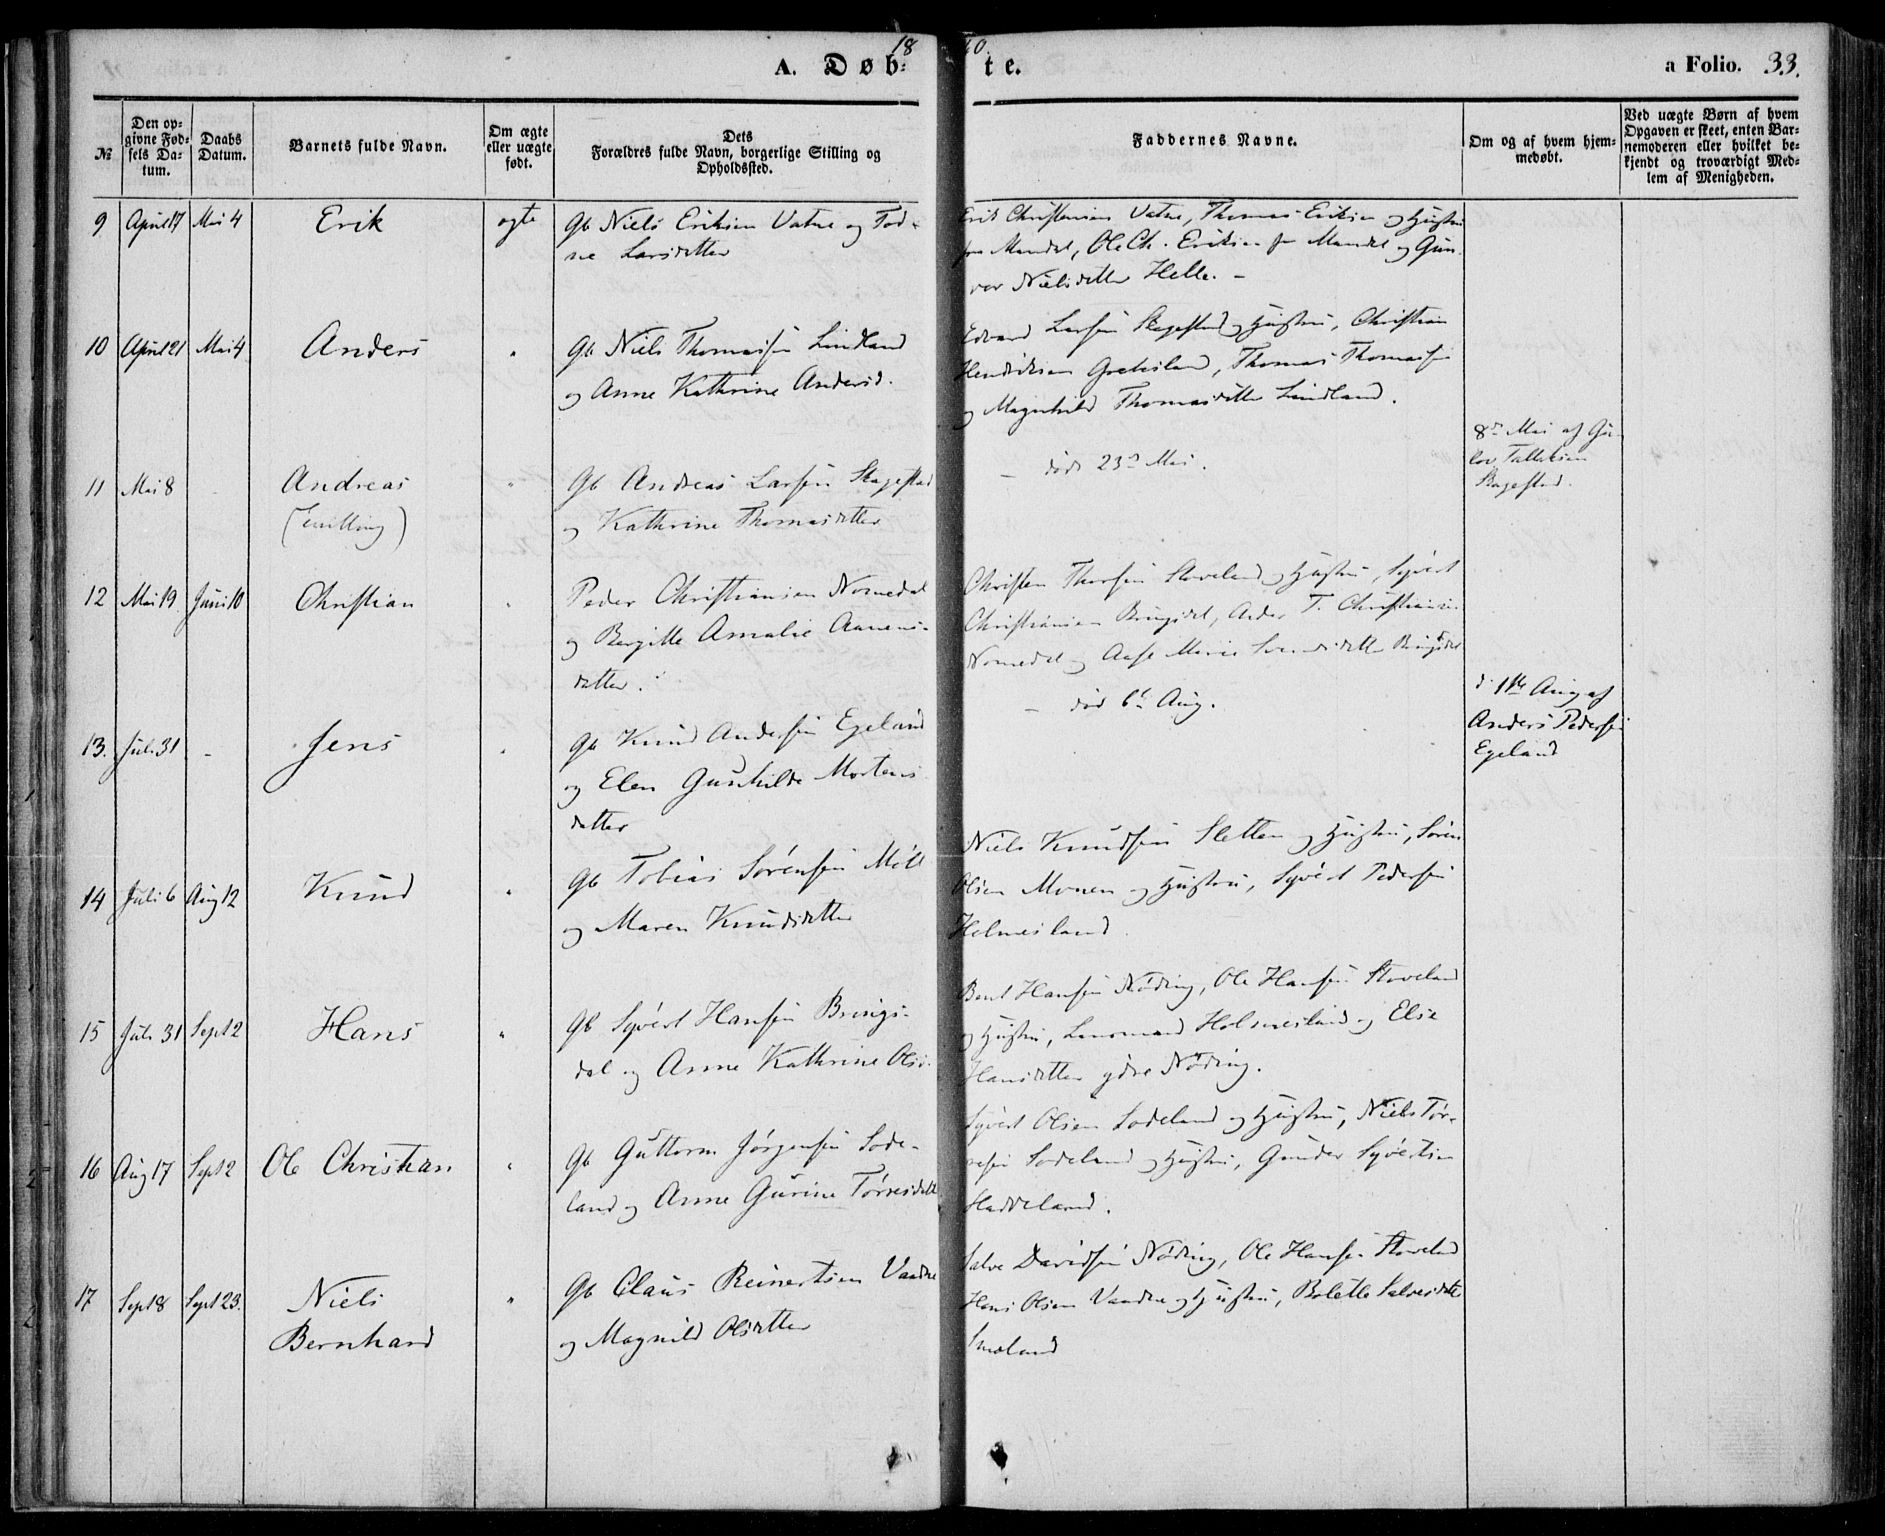 1860.
A. Døb- te.
a Folio. 33.
№
Den opgivne Fødsels Datum.
Daabs Datum.
Barnets fulde Navn.
Om ægte eller uægte født.
Dets Forældres fulde Navn, borgerlige Stilling og Opholdssted.
Faddernes Navne.
Om og af hvem hjemmedøbt.
Ved uægte Børn af hvem Opgaven er skeet, enten Barnemoderen eller hvilket bekjendt og troværdigt Medlem af Menigheden.
9 April 17 Mai 4 Erik ægte Gb Niels Eriksen Vatne og Tod-
ne Larsdatter
Erik Christensen Vatne, Thomas Eriksen og Hustru
fra Mandal, Ole Ch. Eriksen fr Mandal og Gun-
vor Nielsdatter Helle. -
10 April 21 Mai 4 Anders " Gb Niels Thomassen Lindland
og Anne Kathrine Andersd.
Edvard Larsen Stagestad og Hustru, Christian
Hendriksen Greteland, Thomas Thomassen
og Magnhild Thomasdatter Lindland.
11 Mai 8 - Andreas " Gb Andreas Larsen Stagestad
(Tvilling) og Kathrine Thomasdatter
- død 23de Mai.
8de Mai af Gu-
lov Tallaksen
Stagestad.
12 Mai 19 Juni 10 Christian " Peder Christiansen Nomedal
og Bergitte Amalie Aanens-
datter.
Christen Thorsen Stoveland og Hustru, Syvert
Christiansen Bringsdal, Anders T. Christiansen
Nomedal og Aase Marie Svendsdatter Bringsdal
13. Juli 31 - Jens " Gb Knud Andersen Egeland
og Elen Gunhilde Mortens-
datter
- død 6te Aug.
d. 1ste Aug af
Anders Pedersen
Egeland
14 Juli 6 Aug 12 Knud " Gb Tobias Sørensen Möll
og Maren Knudsdatter
Niels Knudsen Sletten og Hustru, Søren
Olsen Monen og Hustru, Syvert Pedersen
Holmesland.
15 Juli 31 Sept 2 Hans " Gb Syvert Hansen Brings-
dal og Anne Kathrine Olsd.
Bent Hansen Nøding, Ole Hansen Stoveland
og Hustru, Lensmand Holmesland og Elie
Hansdatter ydre Nøding.
16 Aug 17 Sept 2 Ole Christian " Gb Guttorm Jørgensen Sode-
land og Anne Gurine Tørresdatt
Syvert Olsen Sodeland og Hustru, Niels Tør-
resen Sodeland og Hustru, Gunder Syvertsen
Haddeland.
17 Sept 8 Sept 23. Niels " Gb Claus Reinertsen Vandne
Bernhard og Magnild Olsdatter
Salve Davidsen Nøding, Ole Hansen Stoveland
Hans Olsen Vandne og Hustru, Bolette Salvesdatt